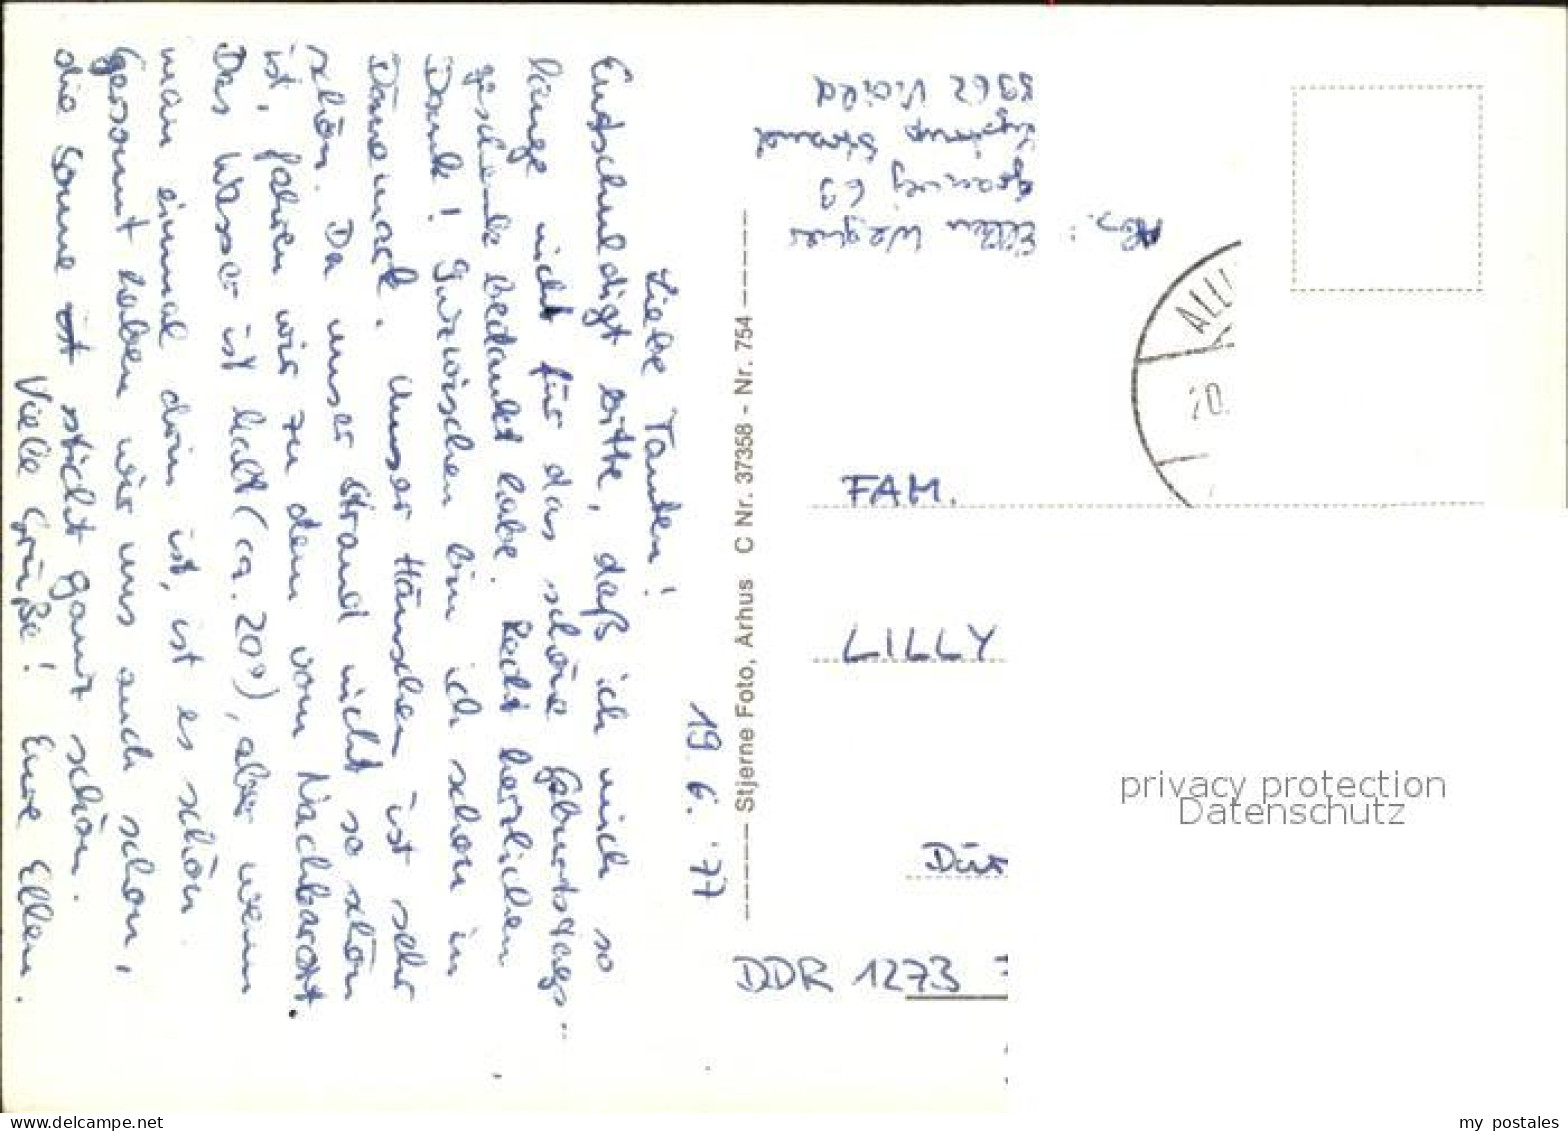 19. 6. '77
Liebe Tanten!
Entschuldigt bitte, daß ich mich so
lange nicht für das schöne Geburtstags-
geschenk bedankt habe. Recht herzlichen
Dank! Inzwischen bin ich schon in
Dänemark. Unser Häuschen ist sehr
schön. Da unser Strand nicht so schön
ist, fahren wir zu dem vom Nachbarort.
Das Wasser ist kalt (ca. 20°), aber wenn
man einmal drin ist, ist es schön.
Gesonnt haben wir uns auch schon,
die Sonne ist sticht ganz schön.
Viele Grüße! Eure Ellen.
Stjerne Foto, Århus C Nr. 37358 - Nr. 754
Abs.: Ellen Wegner
69
Strand
ALLI
20.
FAM.
LILLY
privacy protection
Datenschutz
DDR 1273
my postales